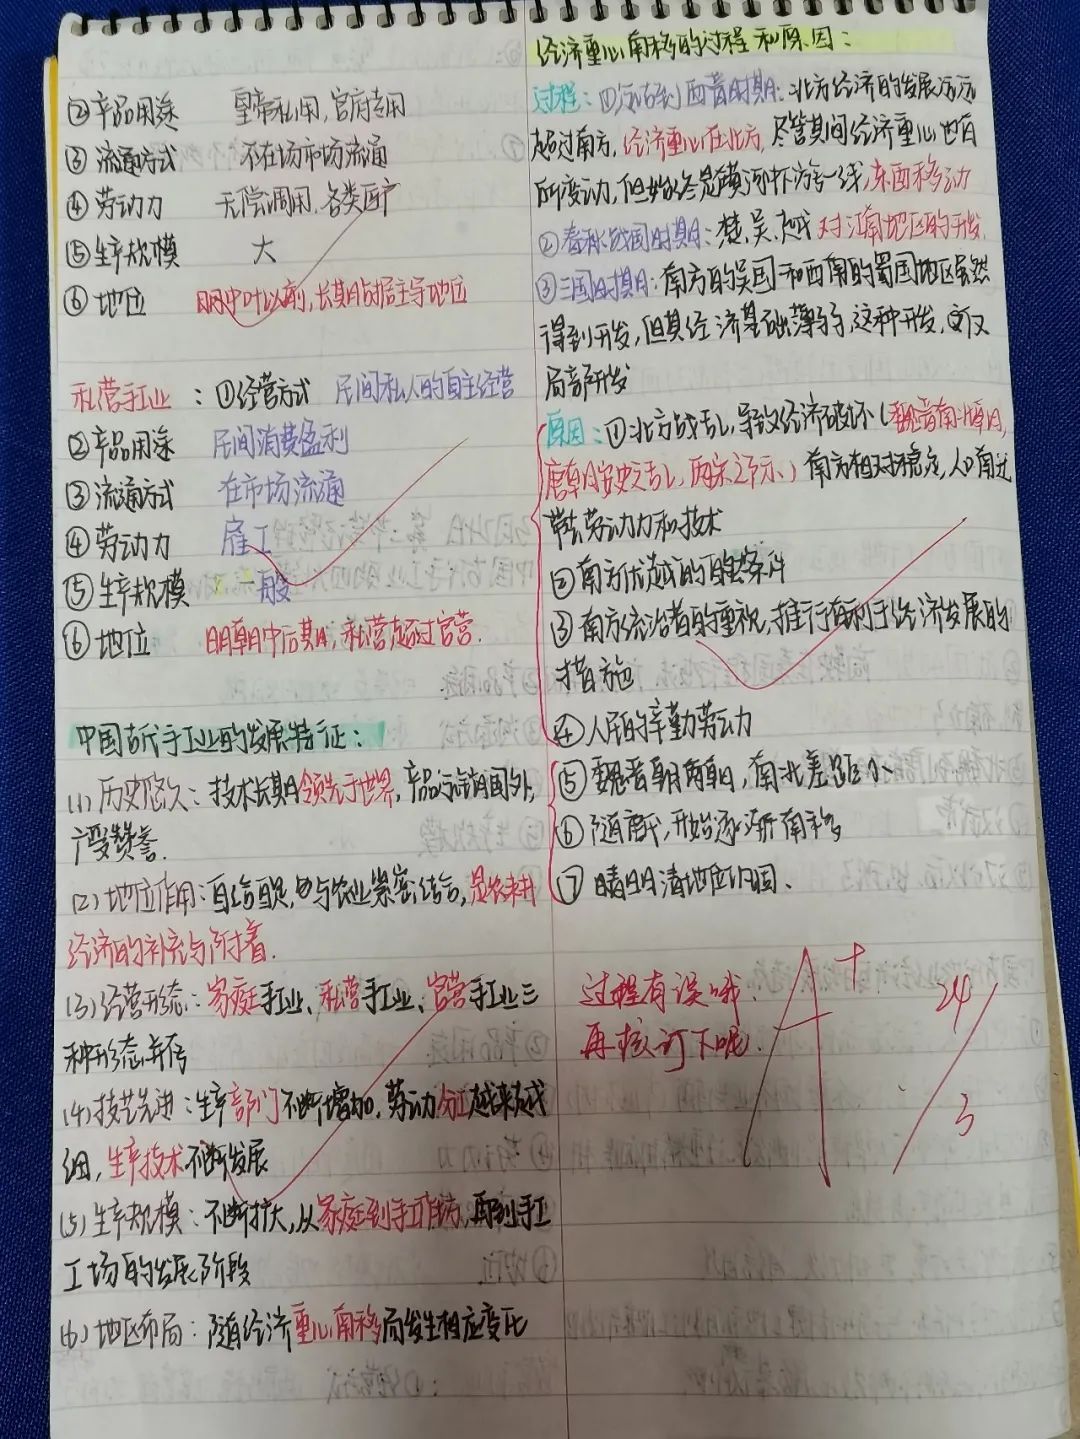 ②产品用途 皇帝私用,官府专用
③流通方式 不在场市场流通
④劳动力 无偿调用,各类匠户
⑤生产规模 大
⑥地位 明中叶以前,长期占据主导地位
私营手工业:①经营方式 民间私人的自主经营
②产品用途 民间消费盈利
③流通方式 在市场流通
④劳动力 雇工
⑤生产规模 一般
⑥地位 明朝中后期,私营超过官营.
中国古代手工业的发展特征:
(1)历史悠久:技术长期领先于世界,产品远销国外,
广受赞誉.
(2)地位作用:自给自足,与农业紧密结合,是农耕
经济的补充与附着.
(3)经营形态:家庭手工业、私营手工业、官营手工业三
种形态并存
(4)技艺先进:生产部门不断增加,劳动分工越来越
细,生产技术不断发展
(5)生产规模:不断扩大,从家庭到手工作坊,再到手工
工场的发展阶段
(6)地区布局:随经济重心南移局发生相应变化
经济重心南移的过程和原因:
过程:①远古到西晋时期:北方经济的发展远远
超过南方,经济重心在北方,尽管其间经济重心地有
所变动,但始终是黄河下游一线,东西移动
②春秋战国时期:楚、吴、越对江南地区的开发.
③三国时期:南方的吴国和西南的蜀国地区虽然
得到开发,但其经济基础薄弱,这种开发,仅
局部开发
原因:①北方战乱,导致经济破坏(魏晋南北朝,
唐朝安史之乱,两宋之际)南方相对稳定,人口南迁
带去劳动力和技术
②南方优越的自然条件
③南方统治者的重视,推行有利于经济发展的
措施
④人民的辛勤劳动力
⑤魏晋朝两朝,南北差距小
⑥隋唐代,开始逐渐南移
⑦明清地位巩固、
过程有误哦.
再核订下呢.
A+
24/3